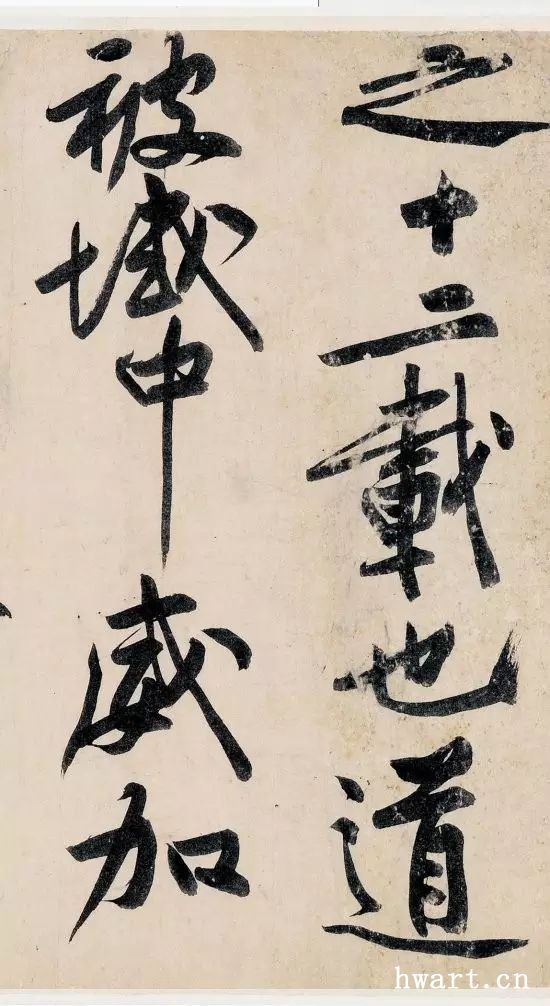 之十二載也道
被域中威加
hwart.cn